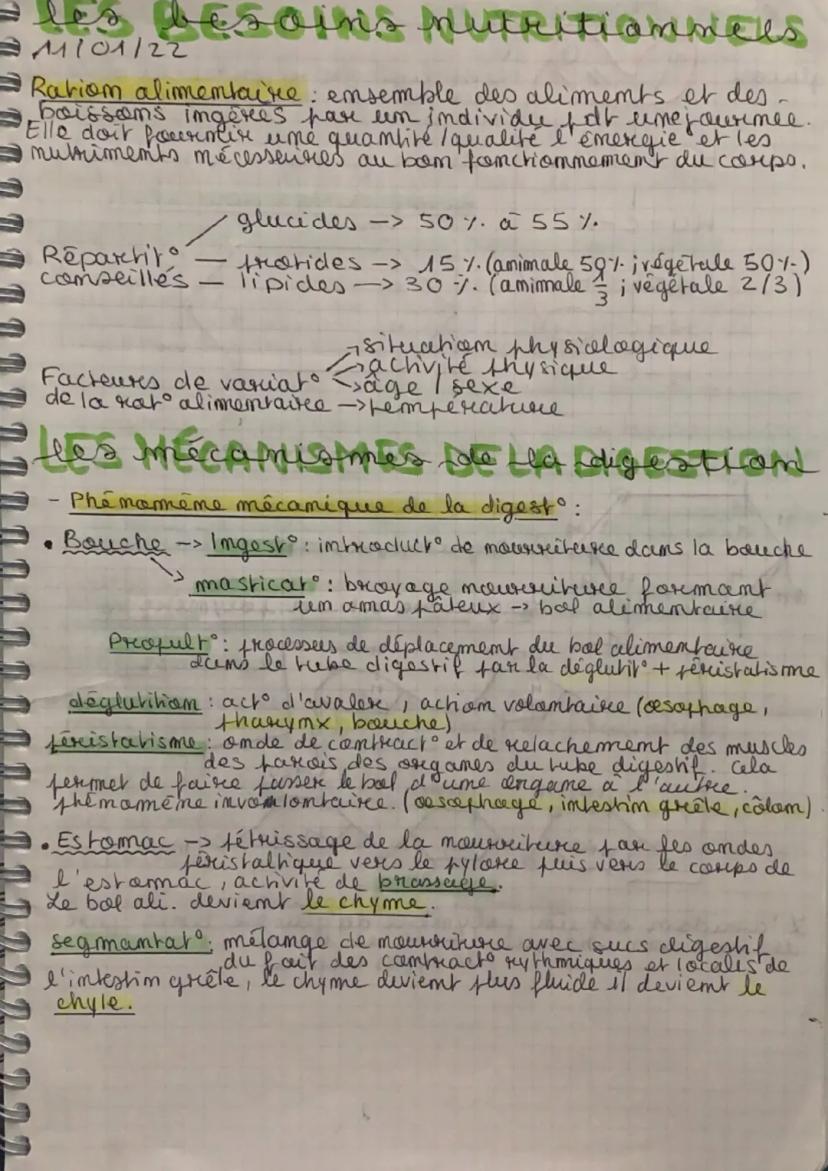 LES besoins NUTRITIONNELS
11/01/22
Ration alimentaire : ensemble des aliments et des
boissons ingérés par un individu pdt une journée.
Elle doit fournir une quantité/qualité l'énergie et les
nutriments nécesseires au bon fonctionnement du corps.
glucides -> 50 % à 55 %
Répartit° — protides -> 15 % (animale 50% ; végétale 50%)
conseillés — lipides -> 30 % (animale 1/3 ; végétale 2/3)
situation physiologique
activité physique
Facteurs de variat° -> âge / sexe
de la rat° alimentaire -> température
les MÉCANISMES DE LA digestion
- Phénomène mécanique de la digest° :
• Bouche -> Ingest° : introduct° de nourriture dans la bouche
masticat° : broyage nourriture formant
un amas pâteux -> bol alimentaire
Propult° : processus de déplacement du bol alimentaire
dans le tube digestif par la déglutit° + péristatisme
déglutition : act° d'avaler, action volontaire (œsophage,
pharynx, bouche)
péristatisme : onde de contract° et de relachement des muscles
des parois des organes du tube digestif. Cela
permet de faire passer le bol d'une organe à l'autre.
phénomème involontaire. (oesophage, intestin grêle, côlon)
• Estomac -> pétrissage de la nourriture par les ondes
péristaltique vers le pylore puis vers le corps de
l'estomac, activité de brassage.
Le bol ali. devient le chyme.
segmantat° : mélange de nourriture avec sucs digestif
du fait des contract° rythmiques et locales de
l'intestin grêle, le chyme devient plus fluide il devient le
chyle.